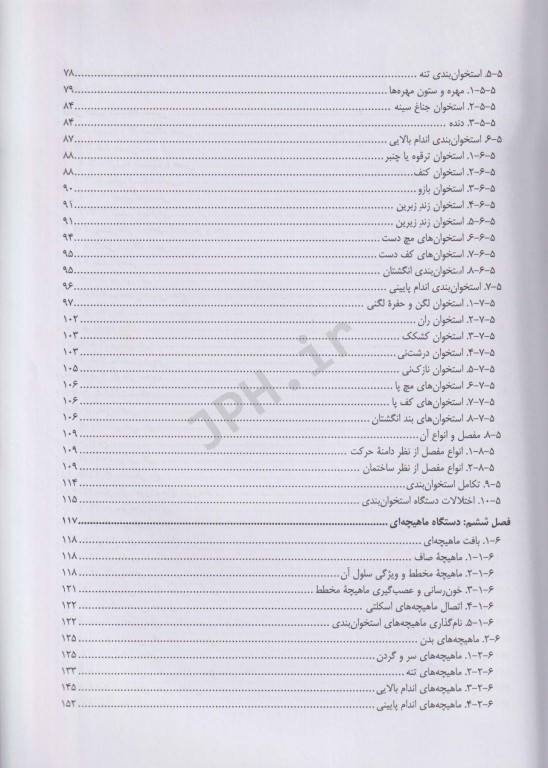 ۵-۵. استخوان‌بندی تنه ........ ۷۸
۵-۵-۱. مهره و ستون مهره‌ها ........ ۷۹
۵-۵-۲. استخوان جناغ سینه ........ ۸۴
۵-۵-۳. دنده ........ ۸۴
۵-۶. استخوان‌بندی اندام بالایی ........ ۸۷
۵-۶-۱. استخوان ترقوه یا چنبر ........ ۸۸
۵-۶-۲. استخوان کتف ........ ۸۸
۵-۶-۳. استخوان بازو ........ ۹۰
۵-۶-۴. استخوان زندِ زبرین ........ ۹۱
۵-۶-۵. استخوان زندِ زیرین ........ ۹۱
۵-۶-۶. استخوان‌های مچ دست ........ ۹۴
۵-۶-۷. استخوان‌های کف دست ........ ۹۵
۵-۶-۸. استخوان‌بندی انگشتان ........ ۹۵
۵-۷. استخوان‌بندی اندام پایینی ........ ۹۶
۵-۷-۱. استخوان لگن و حفرهٔ لگنی ........ ۹۷
۵-۷-۲. استخوان ران ........ ۱۰۲
۵-۷-۳. استخوان کشکک ........ ۱۰۳
۵-۷-۴. استخوان درشت‌نی ........ ۱۰۳
۵-۷-۵. استخوان نازک‌نی ........ ۱۰۵
۵-۷-۶. استخوان‌های مچ پا ........ ۱۰۶
۵-۷-۷. استخوان‌های کف پا ........ ۱۰۶
۵-۷-۸. استخوان‌های بند انگشتان ........ ۱۰۶
۵-۸. مفصل و انواع آن ........ ۱۰۹
۵-۸-۱. انواع مفصل از نظر دامنهٔ حرکت ........ ۱۰۹
۵-۸-۲. انواع مفصل از نظر ساختمان ........ ۱۰۹
۵-۹. تکامل استخوان‌بندی ........ ۱۱۴
۵-۱۰. اختلالات دستگاه استخوان‌بندی ........ ۱۱۵
فصل ششم: دستگاه ماهیچه‌ای ........ ۱۱۷
۶-۱. بافت ماهیچه‌ای ........ ۱۱۸
۶-۱-۱. ماهیچهٔ صاف ........ ۱۱۸
۶-۱-۲. ماهیچهٔ مخطط و ویژگی سلول آن ........ ۱۱۸
۶-۱-۳. خون‌رسانی و عصب‌گیری ماهیچهٔ مخطط ........ ۱۲۱
۶-۱-۴. اتصال ماهیچه‌های اسکلتی ........ ۱۲۲
۶-۱-۵. نام‌گذاری ماهیچه‌های استخوان‌بندی ........ ۱۲۲
۶-۲. ماهیچه‌های بدن ........ ۱۲۵
۶-۲-۱. ماهیچه‌های سر و گردن ........ ۱۲۵
۶-۲-۲. ماهیچه‌های تنه ........ ۱۳۳
۶-۲-۳. ماهیچه‌های اندام بالایی ........ ۱۴۵
۶-۲-۴. ماهیچه‌های اندام پایینی ........ ۱۵۲
JPH.ir